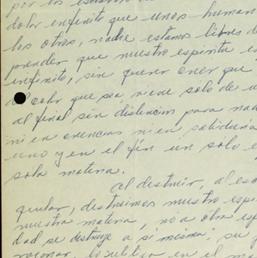 por los
dolor infinito que unos human
los otros, nadie estamos libres d
prender que nuestro espíritu es
infinito, sin querer creer que
el color que sea viene solo de u
al final sin distinción para nad
ni en creencias ni en
uno y en el fin un solo e
sola materia.
al destruir, al es
quilar, destruimos nuestro espí
nuestra materia, no a otra es
dad se destruye a sí misma; su